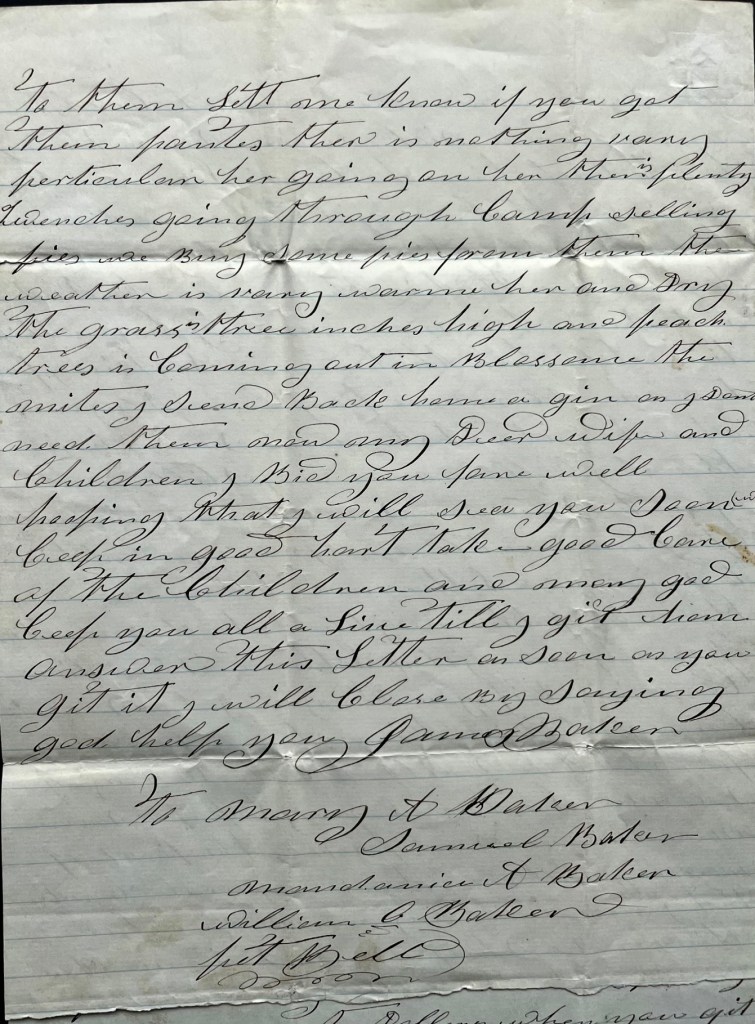 to them Lett me know if you got
them pantes ther is nothing vary
perticular her going on her ther is plenty
wenches going through Camp selling
pies we Buy some pies from them the
weather is vary warme her and Dry
the grass is three inches high and peach
trees is Coming out in Blossome the
mites I Send Back home a gin as I Dont
need them now my Deer wife and
Children I Bid you fare well
hopping that I will see you soon
Ceep in good hart take good Care
of the Children and may god
Ceep you all a Live till I git hom
answer this Letter as soon as you
git it I will Close By Saying
god help you James Baker
To Mary A Baker
Samuel Baker
Mandania A Baker
William C Baker
pet Bell
Dollars when you git